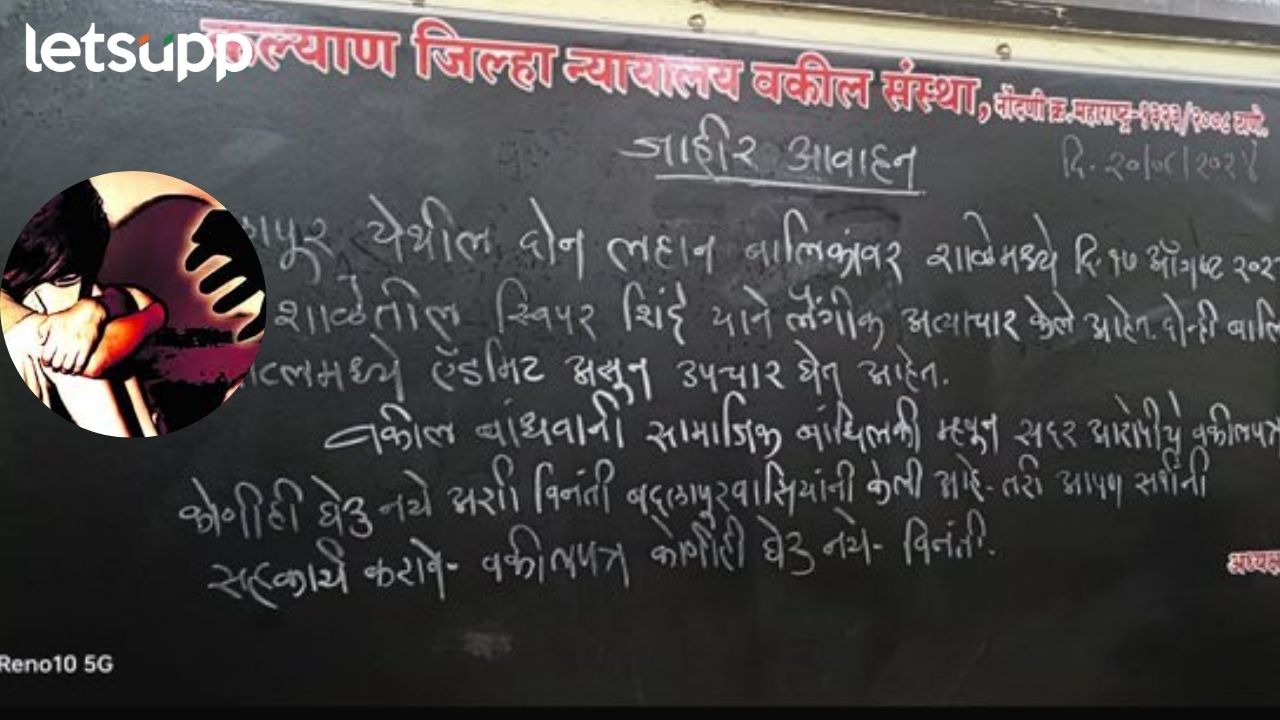 letsupp
कल्याण जिल्हा न्यायालय वकील संस्था, नोंदणी क्र. महाराष्ट्र-१३२३/२००८ ठाणे.
जाहीर आवाहन
दि. २०/०८/२०२४
येथील दोन लहान बालिकांवर शाळेमध्ये दि. १७ ऑगष्ट २०२
शाळेतील स्विपर शिंदे याने लैंगीक अत्याचार केले आहेत. दोन्ही बालि
टलमध्ये ऍडमिट असुन उपचार घेत आहेत.
वकील बांधवानी सामाजिक बांधिलकी म्हणुन सदर आरोपीचे वकीलपत्र
कोणीही घेऊ नये अशी विनंती बदलापुरवासियांनी केली आहे- तरी आपण सर्वांनी
सहकार्य करावे- वकीलपत्र कोणीही घेऊ नये- विनंती.
अध्यक्ष
Reno10 5G